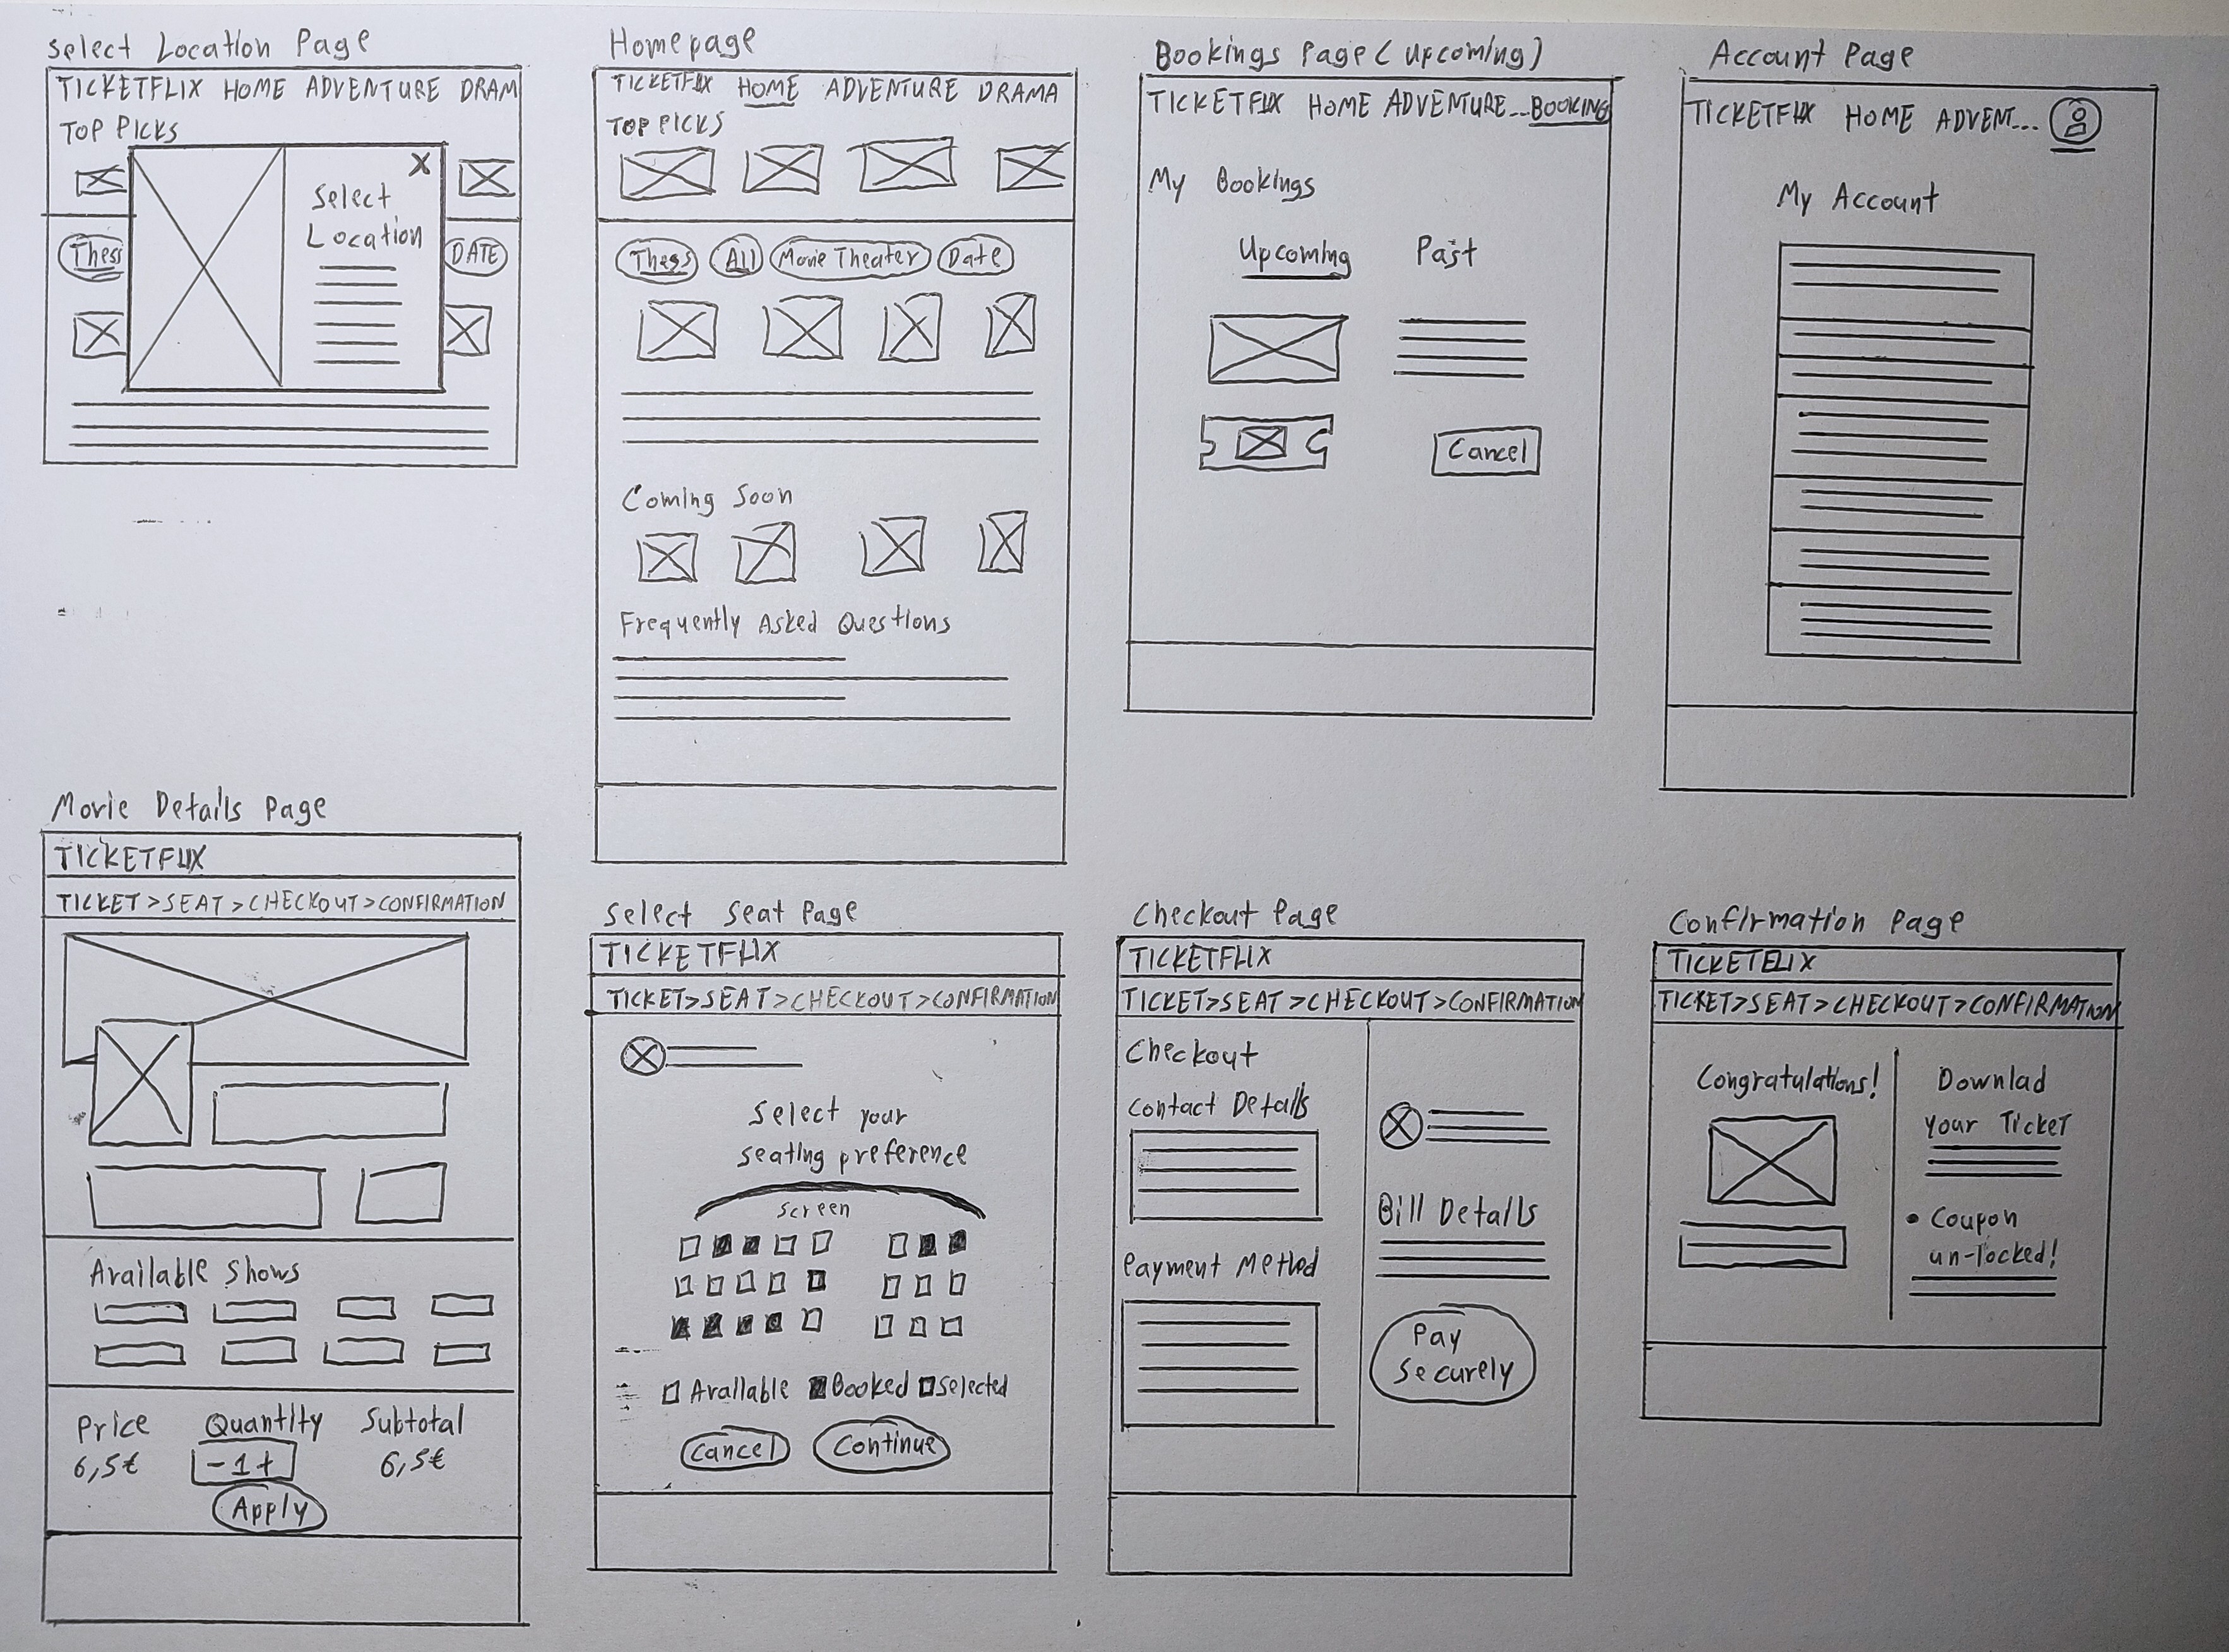 Select Location Page
TICKETFLIX HOME ADVENTURE DRAM
TOP PICKS
X
Select
Location
Thess
DATE
Homepage
TICKETFLIX HOME ADVENTURE DRAMA
TOP PICKS
Thess All Movie Theater Date
Coming Soon
Frequently Asked Questions
Bookings Page (Upcoming)
TICKETFLIX HOME ADVENTURE... BOOKING
My Bookings
Upcoming Past
Cancel
Account Page
TICKETFLIX HOME ADVENT...
My Account
Movie Details Page
TICKETFLIX
TICKET>SEAT>CHECKOUT>CONFIRMATION
Available Shows
Price Quantity Subtotal
6,5€ -1+ 6,5€
Apply
Select Seat Page
TICKETFLIX
TICKET>SEAT>CHECKOUT>CONFIRMATION
Select your
seating preference
Screen
Available Booked Selected
Cancel Continue
Checkout Page
TICKETFLIX
TICKET>SEAT>CHECKOUT>CONFIRMATION
Checkout
Contact Details
Payment Method
Bill Details
Pay
Securely
Confirmation Page
TICKETFLIX
TICKET>SEAT>CHECKOUT>CONFIRMATION
Congratulations!
Downlad
your Ticket
• Coupon
un-locked!